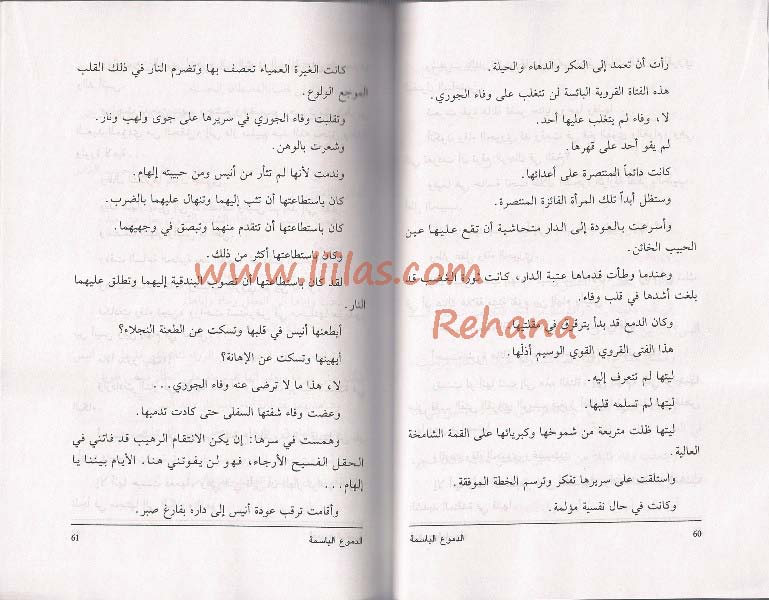 رأت أن تعمد إلى المكر والدهاء والحيلة.
هذه الفتاة القروية البائسة لن تتغلب على وفاء الجوري.
لا، وفاء لم يتغلب عليها أحد.
لم يقو أحد على قهرها.
كانت دائماً المنتصرة على أعدائها.
وستظل أبداً تلك المرأة الفائزة المنتصرة.
وأسرعت بالعودة إلى الدار متحاشية أن تقع عليها عين
الحبيب الخائن.
وعندما وطأت قدماها عتبة الدار، كانت ثورة الغضب قد
بلغت أشدها في قلب وفاء.
وكان الدمع قد بدأ يترقرق في مقلتيها.
هذا الفتى القروي القوي الوسيم أذلّها.
ليتها لم تتعرف إليه.
ليتها لم تسلمه قلبها.
ليتها ظلت متربعة من شموخها وكبريائها على القمة الشامخة
العالية.
واستلقت على سريرها تفكر وترسم الخطة الموفقة.
وكانت في حال نفسية مؤلمة.
60
الدموع الباسمة
كانت الغيرة العمياء تعصف بها وتضرم النار في ذلك القلب
الموجع الولوع.
وتقلبت وفاء الجوري في سريرها على جوى ولهب ونار.
وشعرت بالوهن.
وندمت لأنها لم تثأر من أنيس ومن حبيبته إلهام.
كان باستطاعتها أن تثب إليهما وتنهال عليهما بالضرب.
كان باستطاعتها أن تتقدم منهما وتبصق في وجهيهما.
وكان باستطاعتها أكثر من ذلك.
لقد كان باستطاعتها أن تصوب البندقية إليهما وتطلق عليهما
النار.
أيطعنها أنيس في قلبها وتسكت عن الطعنة النجلاء؟
أيهينها وتسكت عن الإهانة؟
لا، هذا ما لا ترضى عنه وفاء الجوري...
وعضت وفاء شفتها السفلى حتى كادت تدميها.
وهمست في سرها: إن يكن الانتقام الرهيب قد فاتني في
الحقل الفسيح الأرجاء، فهو لن يفوتني هنا. الأيام بيننا يا
إلهام...
وأقامت ترقب عودة أنيس إلى داره بفارغ صبر.
الدموع الباسمة
61
www.liilas.com
Rehana